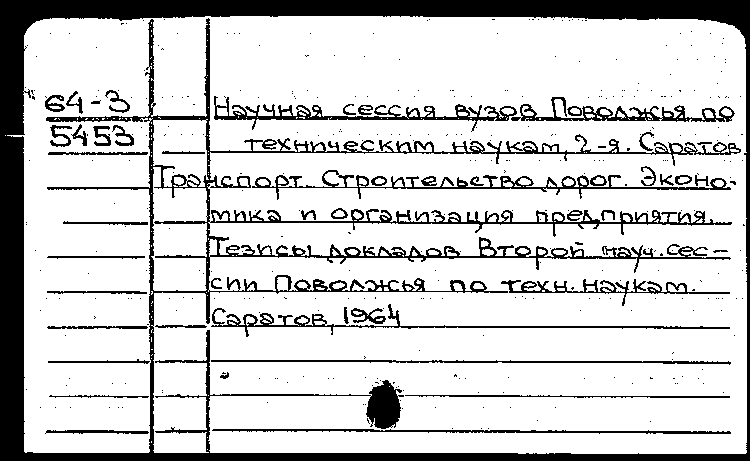 64-3
5453
Научная сессия вузов Поволжья по
техническим наукам, 2-я. Саратов.
Транспорт. Строительство дорог. Эконо-
мика и организация предприятия.
Тезисы докладов Второй науч. сес-
сии Поволжья по техн. наукам.
Саратов, 1964